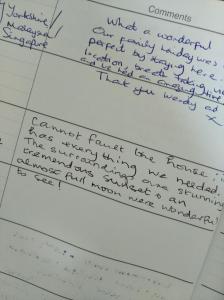 Comments
Yorkshire/
Malaysia/
Singapore
What a wonderful
Our family holiday was
perfect by staying here.
location, breath taking
and we had an amazing time
Thank you
x
Cannot fault the house
has everything we needed.
The surroundings are stunning
tremendous sunset & an
almost full moon were wonderful
to see!